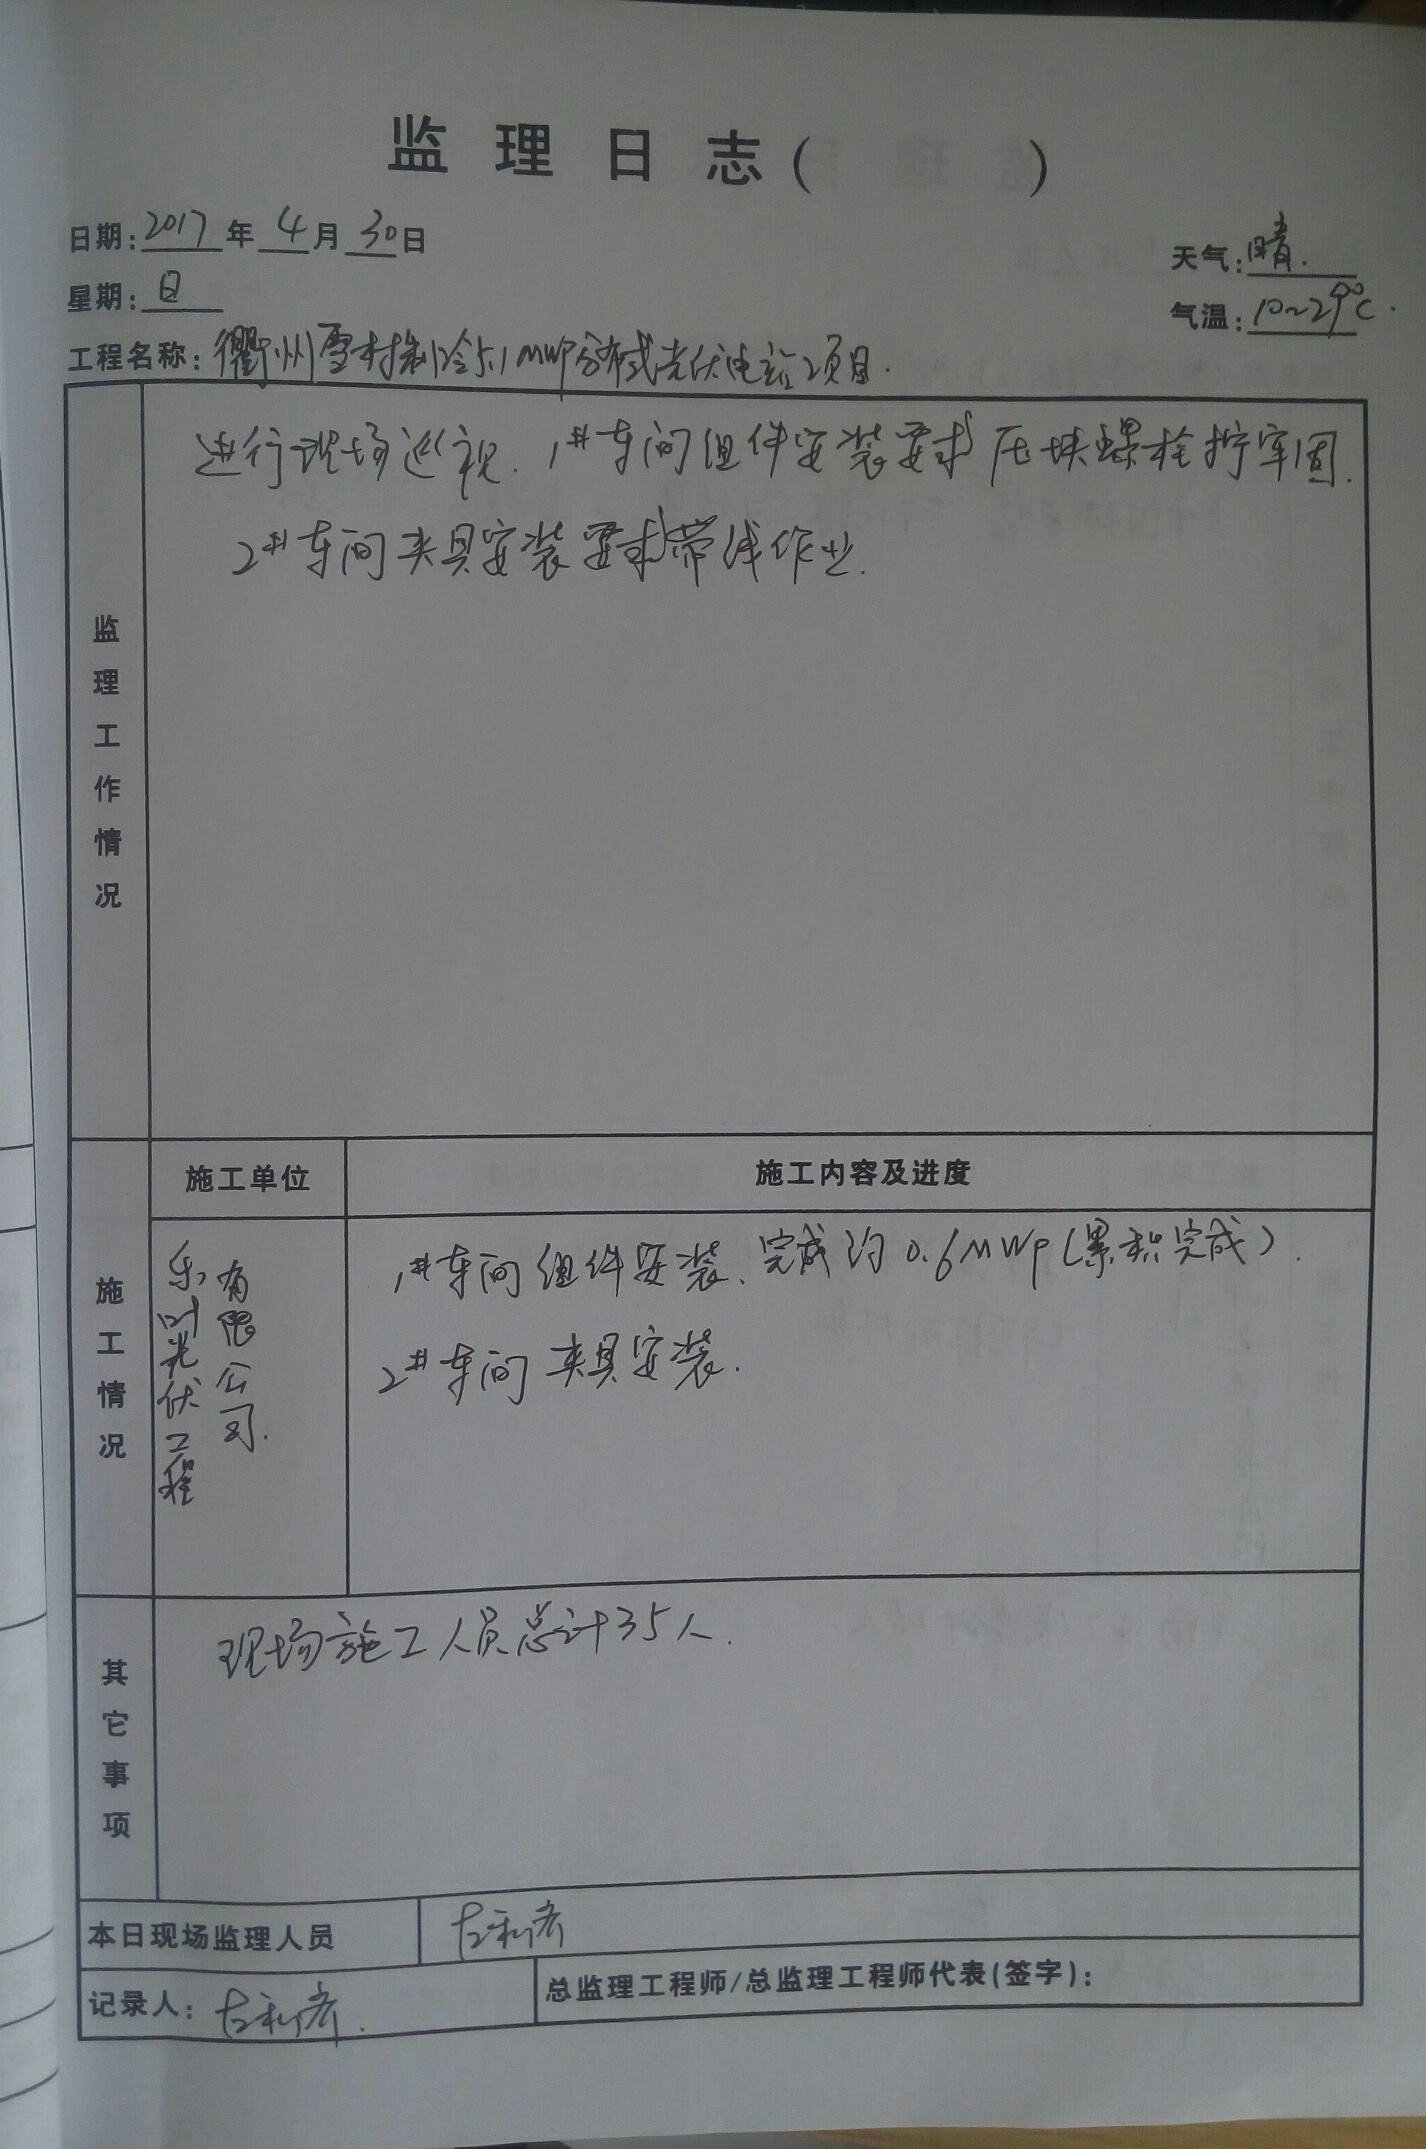 监理日志( )
日期:2017年4月30日
天气:晴.
星期:日
气温:10~29℃.
工程名称:衢州雪村制冷5.1MWP分布式光伏电站项目.
监理工作情况
进行现场巡视.1#车间组件安装要求压块螺栓拧牢固.
2#车间夹具安装要求带线作业.
施工单位
施工内容及进度
施工情况
乐叶光伏工程
有限公司.
1#车间组件安装、完成约0.6MWp(累积完成).
2#车间夹具安装.
其它事项
现场施工人员总计35人.
本日现场监理人员
记录人:
总监理工程师/总监理工程师代表(签字):